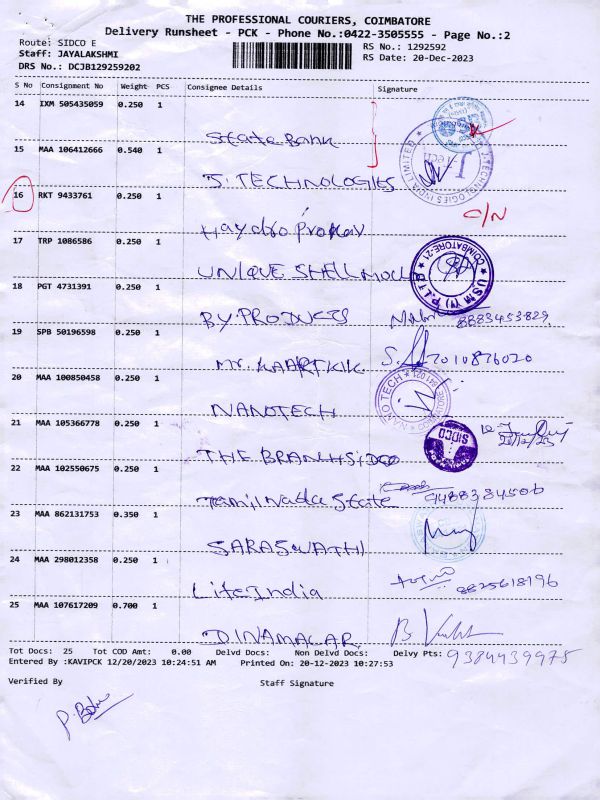 THE PROFESSIONAL COURIERS, COIMBATORE
Delivery Runsheet - PCK - Phone No.:0422-3505555 - Page No.:2
Route: SIDCO E
RS No.: 1292592
Staff: JAYALAKSHMI
RS Date: 20-Dec-2023
DRS No.: DCJB129259202
S No Consignment No Weight PCS Consignee Details Signature
14 IXM 505435059 0.250 1
State Bank
15 MAA 106412666 0.540 1
J. TECHNOLOGIES
16 RKT 9433761 0.250 1
C/N
17 TRP 1086586 0.250 1
UNIQUE SHELL MOULD
18 PGT 4731391 0.250 1
BY PRODUCTS 8883453829
19 SPB 50196598 0.250 1
Mr. KAARTKIK 7010876020
20 MAA 100850458 0.250 1
NANO TECH
NANOTECH
21 MAA 105366778 0.250 1
SIDCO
THE BRANH SIDCO
22 MAA 102550675 0.250 1
Tamil Nadu State 9488384506
23 MAA 862131753 0.350 1
SARASWATHI
24 MAA 298012358 0.250 1
Lite India 8825618196
25 MAA 107617209 0.700 1
DINAMALAR
Tot Docs: 25 Tot COD Amt: 0.00 Delvd Docs: Non Delvd Docs: Delvy Pts: 9384439975
Entered By :KAVIPCK 12/20/2023 10:24:51 AM Printed On: 20-12-2023 10:27:53
Verified By Staff Signature